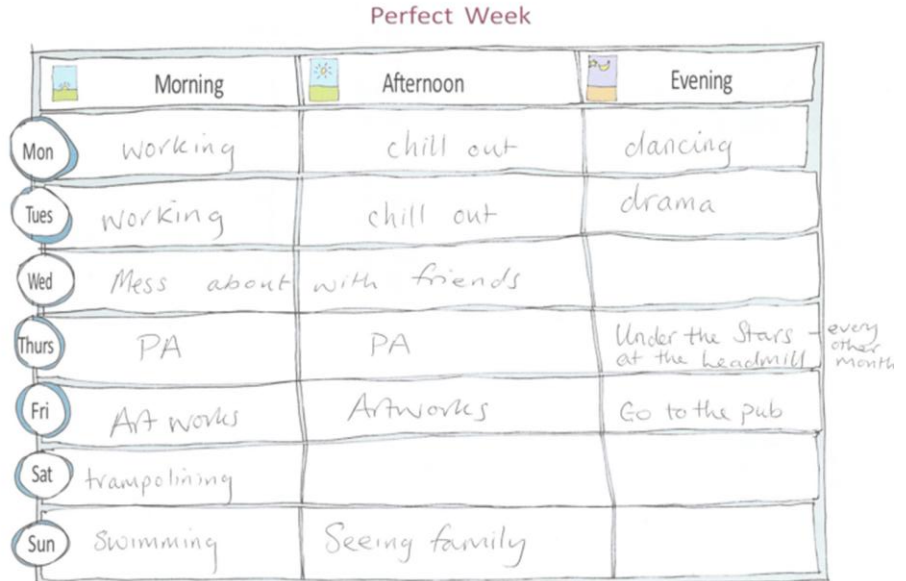 Perfect Week
Morning Afternoon Evening
Mon working chill out dancing
Tues working chill out drama
Wed Mess about with friends
Thurs PA PA Under the Stars - every
at the Leadmill other
month
Fri Art works Artworks Go to the pub
Sat trampolining
Sun Swimming Seeing family